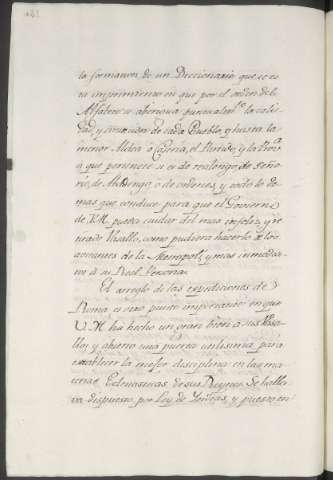 la formacion de un Diccionario que se es
ta imprimiendo en que por el orden del
Alfabeto se aberigua puntualmte. la cali
dad, y situacion de cada Pueblo, y hasta la
menor Aldea, o Caseria, el Partido, y la Prova.
a que pertenece si es de realengo, de Seño
rio, de Abadengo, o de ordenes, y todo lo de
mas que conduce para que el Govierno
de V.M. pueda cuidar del mas infeliz, y re
tirado Vasallo, como pudiera hacerlo de los
de la Metropoli, y mas inmedia
tos á su Real Persona.
El arreglo de las expediciones de
Roma es otro punto importante en que
V.M. ha hecho un gran bien a sus Vasa
llos, y abierto una puerta utilisima para
establecer la mejor disciplina en las ma
terias Eclesiasticas de sus Reynos. Se halla
va dispuesto por Ley de Yndias, y puesto en